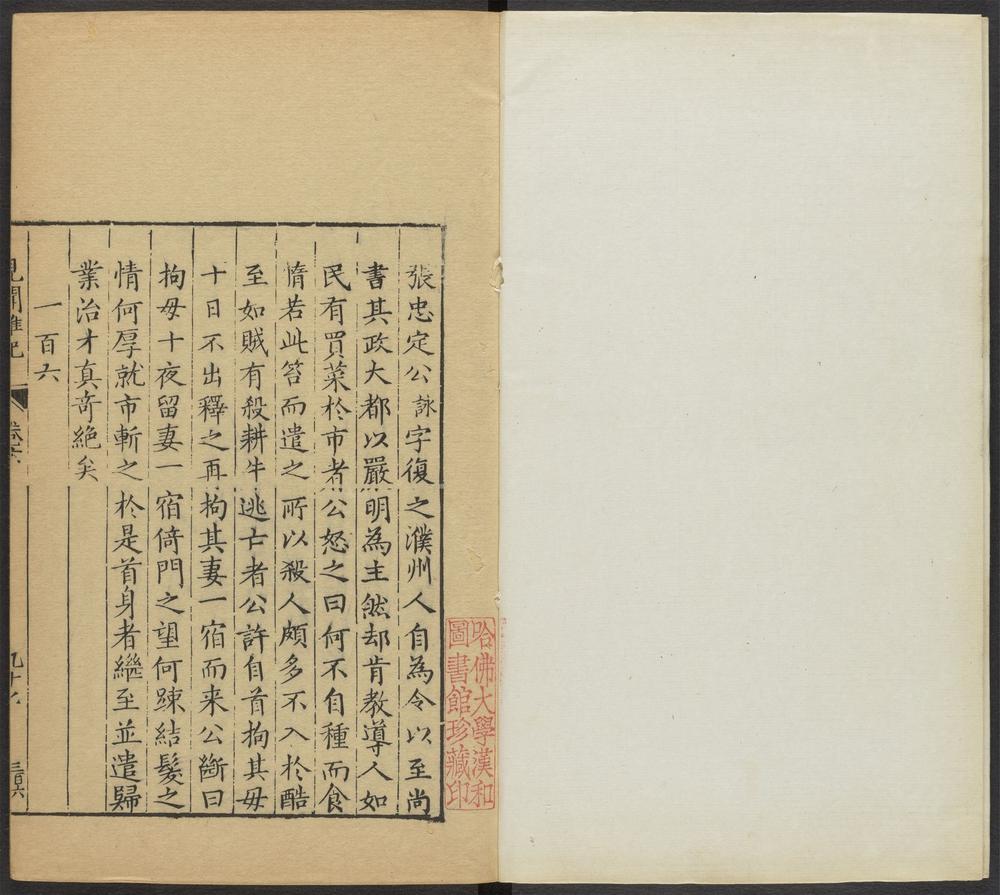 張忠定公詠字復之濮州人自為令以至尚
書其政大都以嚴明為主然却肯教導人如
民有買菜於市者公怒之曰何不自種而食
惰若此笞而遣之所以殺人頗多不入於酷
至如賊有殺耕牛逃亡者公許自首拘其母
十日不出釋之再拘其妻一宿而来公斷曰
拘母十夜留妻一宿倚門之望何踈結髮之
情何厚就市斬之於是首身者繼至並遣歸
業治才真奇絕矣
一百六
見聞雜記
卷六
哈佛大學漢和
圖書館珍藏印